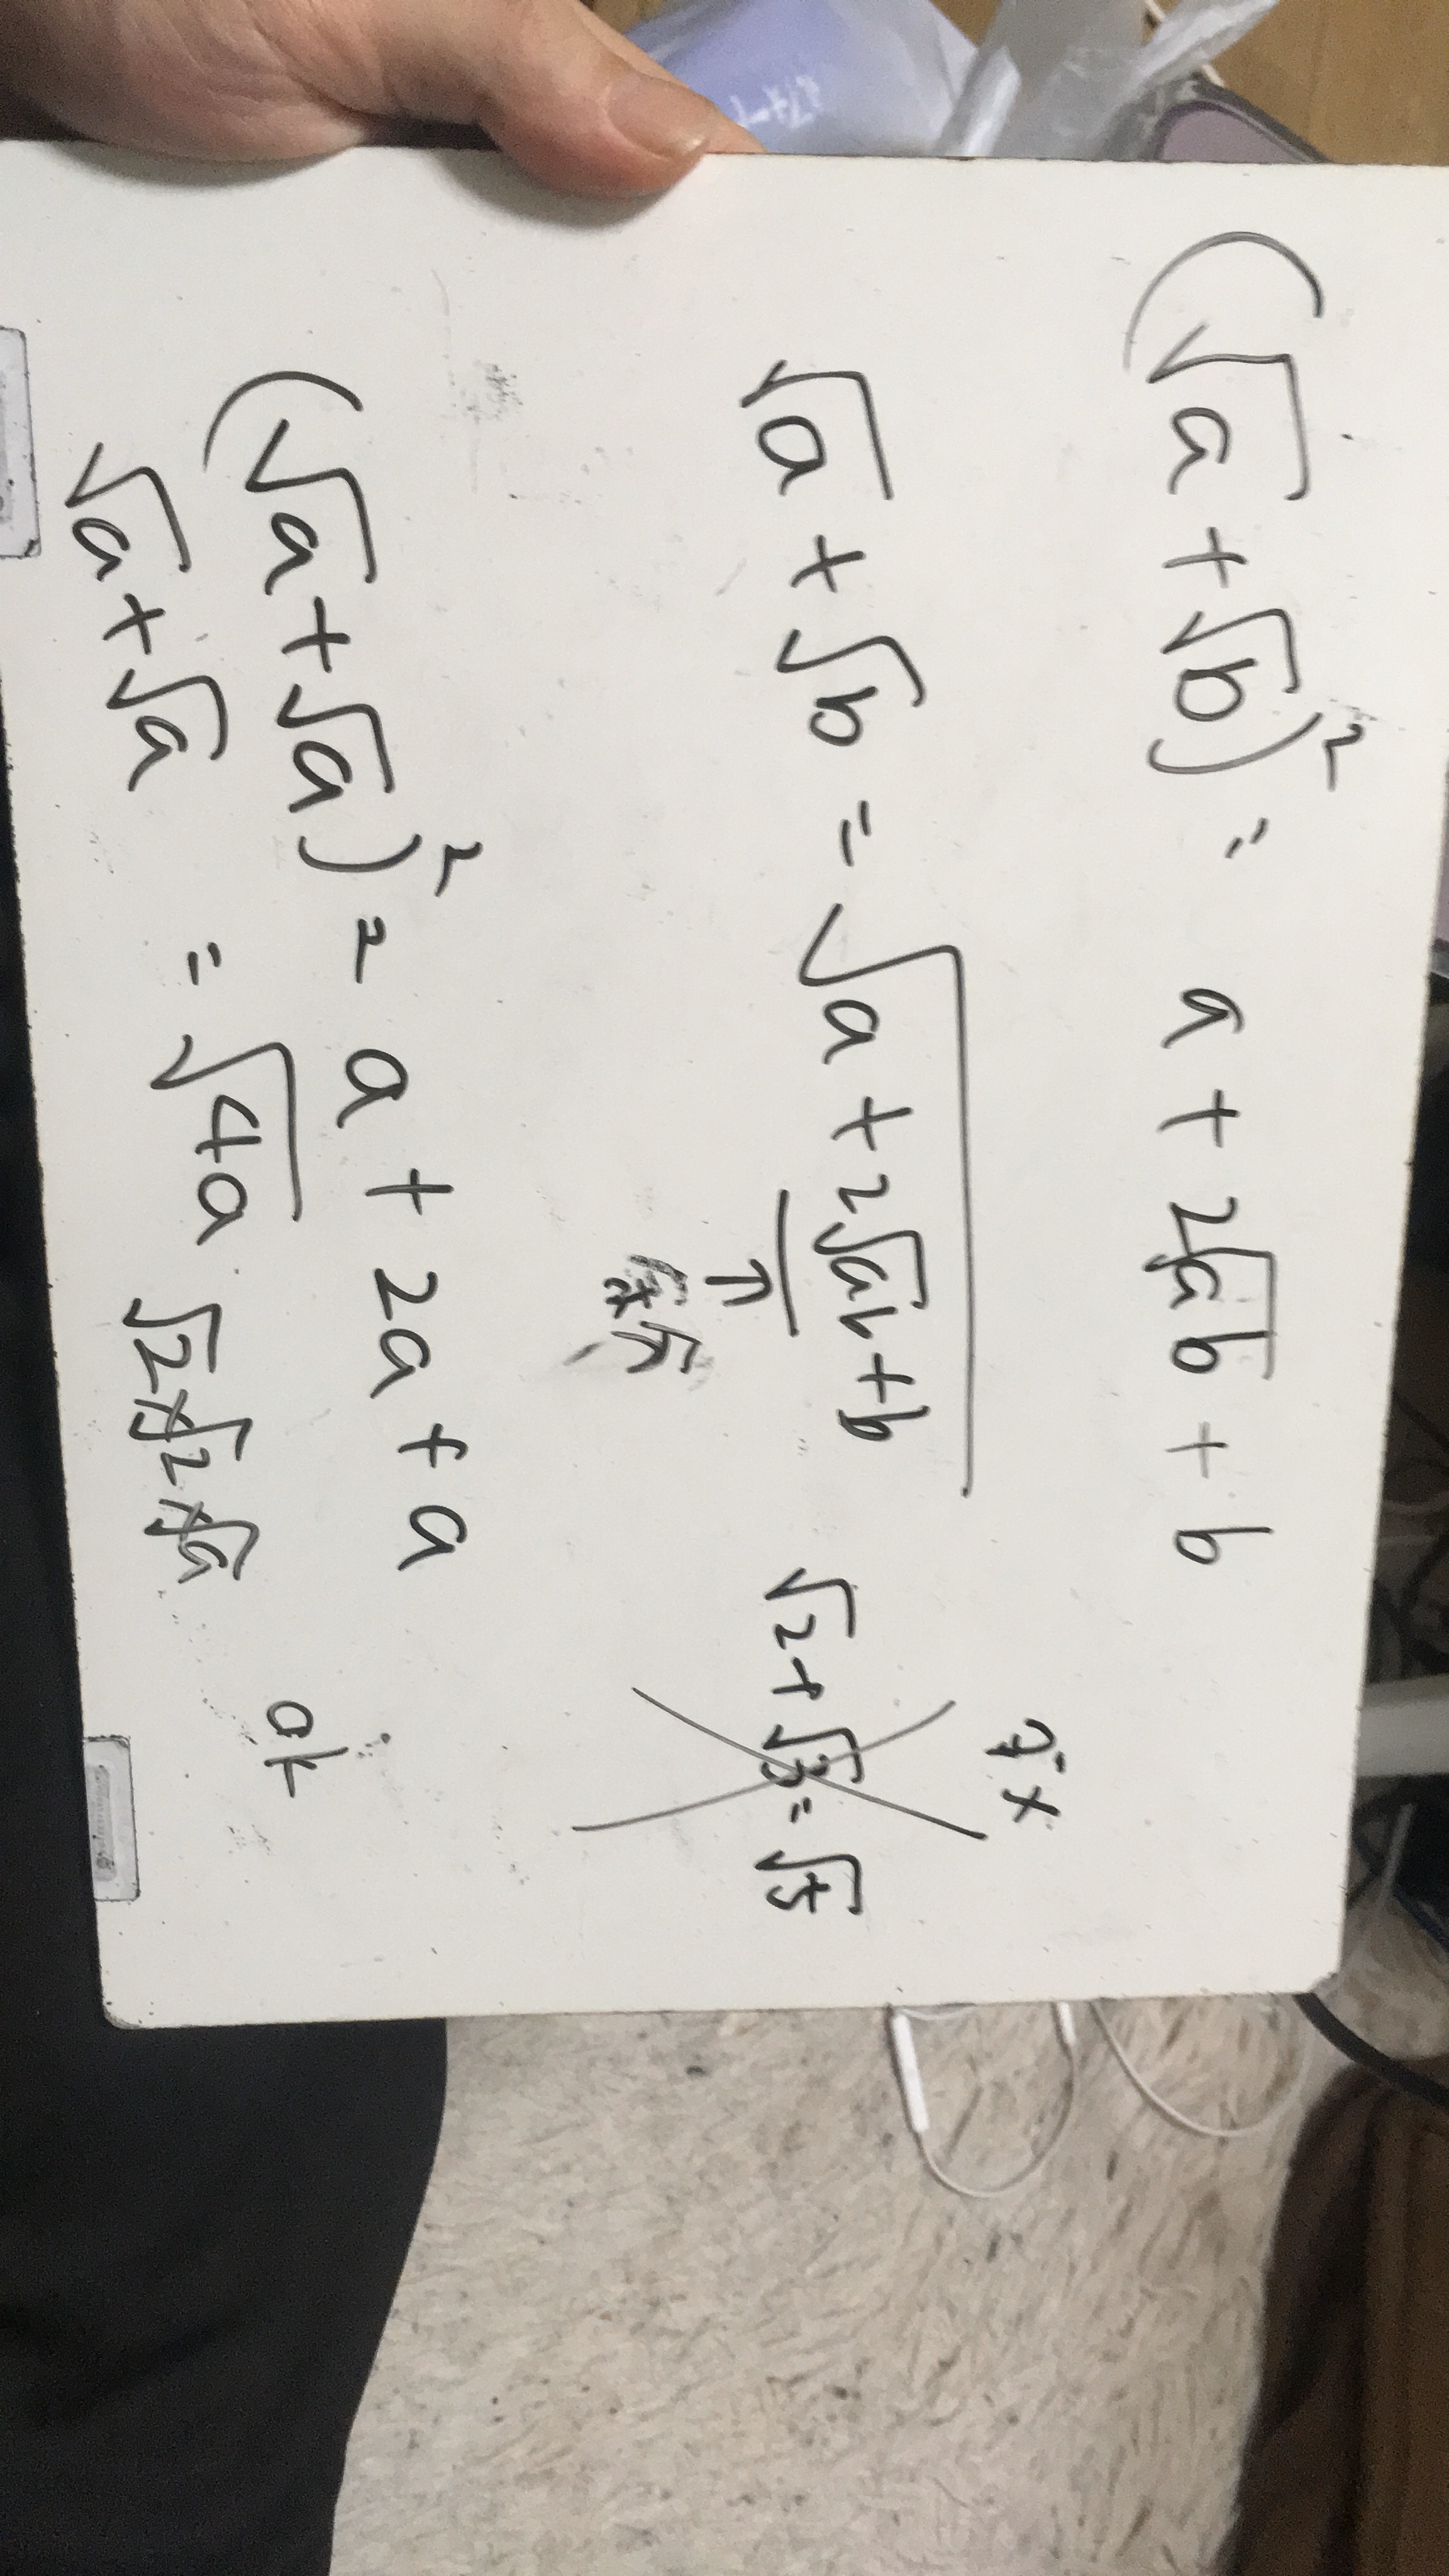 (√a + √b)² = a + 2√ab + b
√a + √b = √(a + 2√ab + b)
√2 + √3 = √5
(√a + √a)² = a + 2a + a
√a + √a = √4a √2×√2×√a
ok